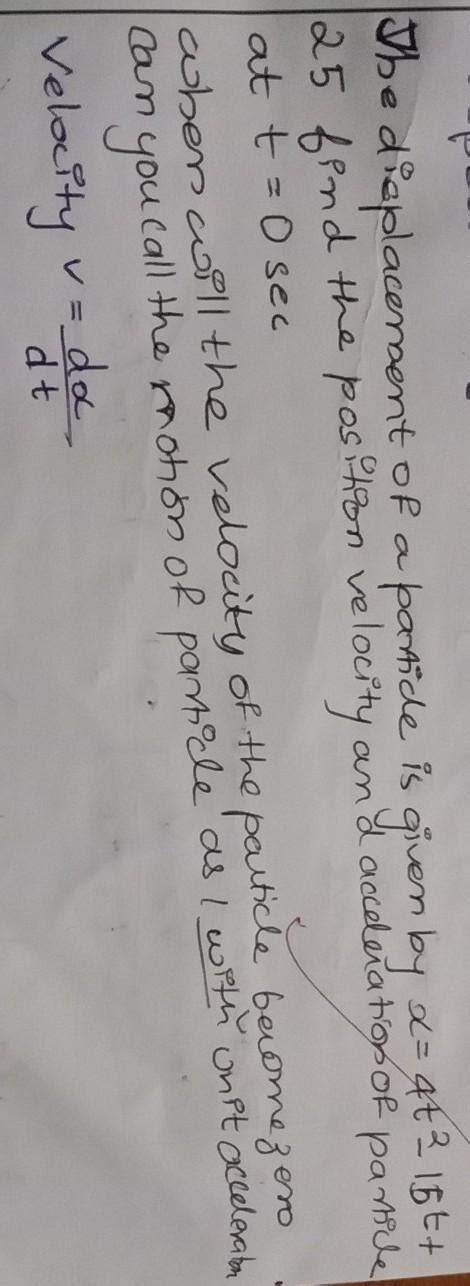 The displacement of a particle is given by x = 4t² - 15t +
25 find the position velocity and acceleration of particle
at t = 0 sec
when will the velocity of the particle become zero
can you call the motion of particle as 1 with unit acceleration
velocity v = dx/dt